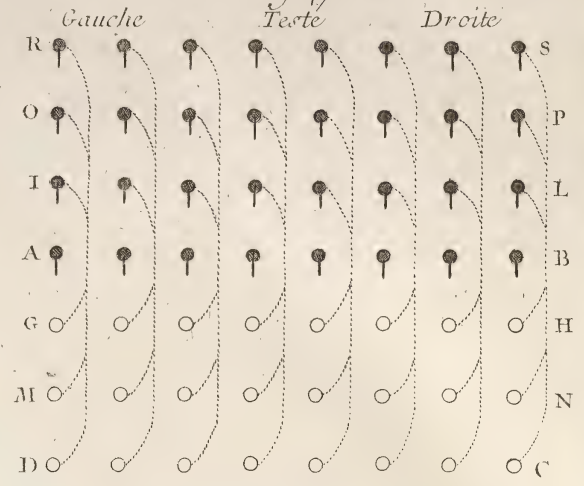 Gauche Teste Droite
R S
O P
I L
A B
G H
M N
D C